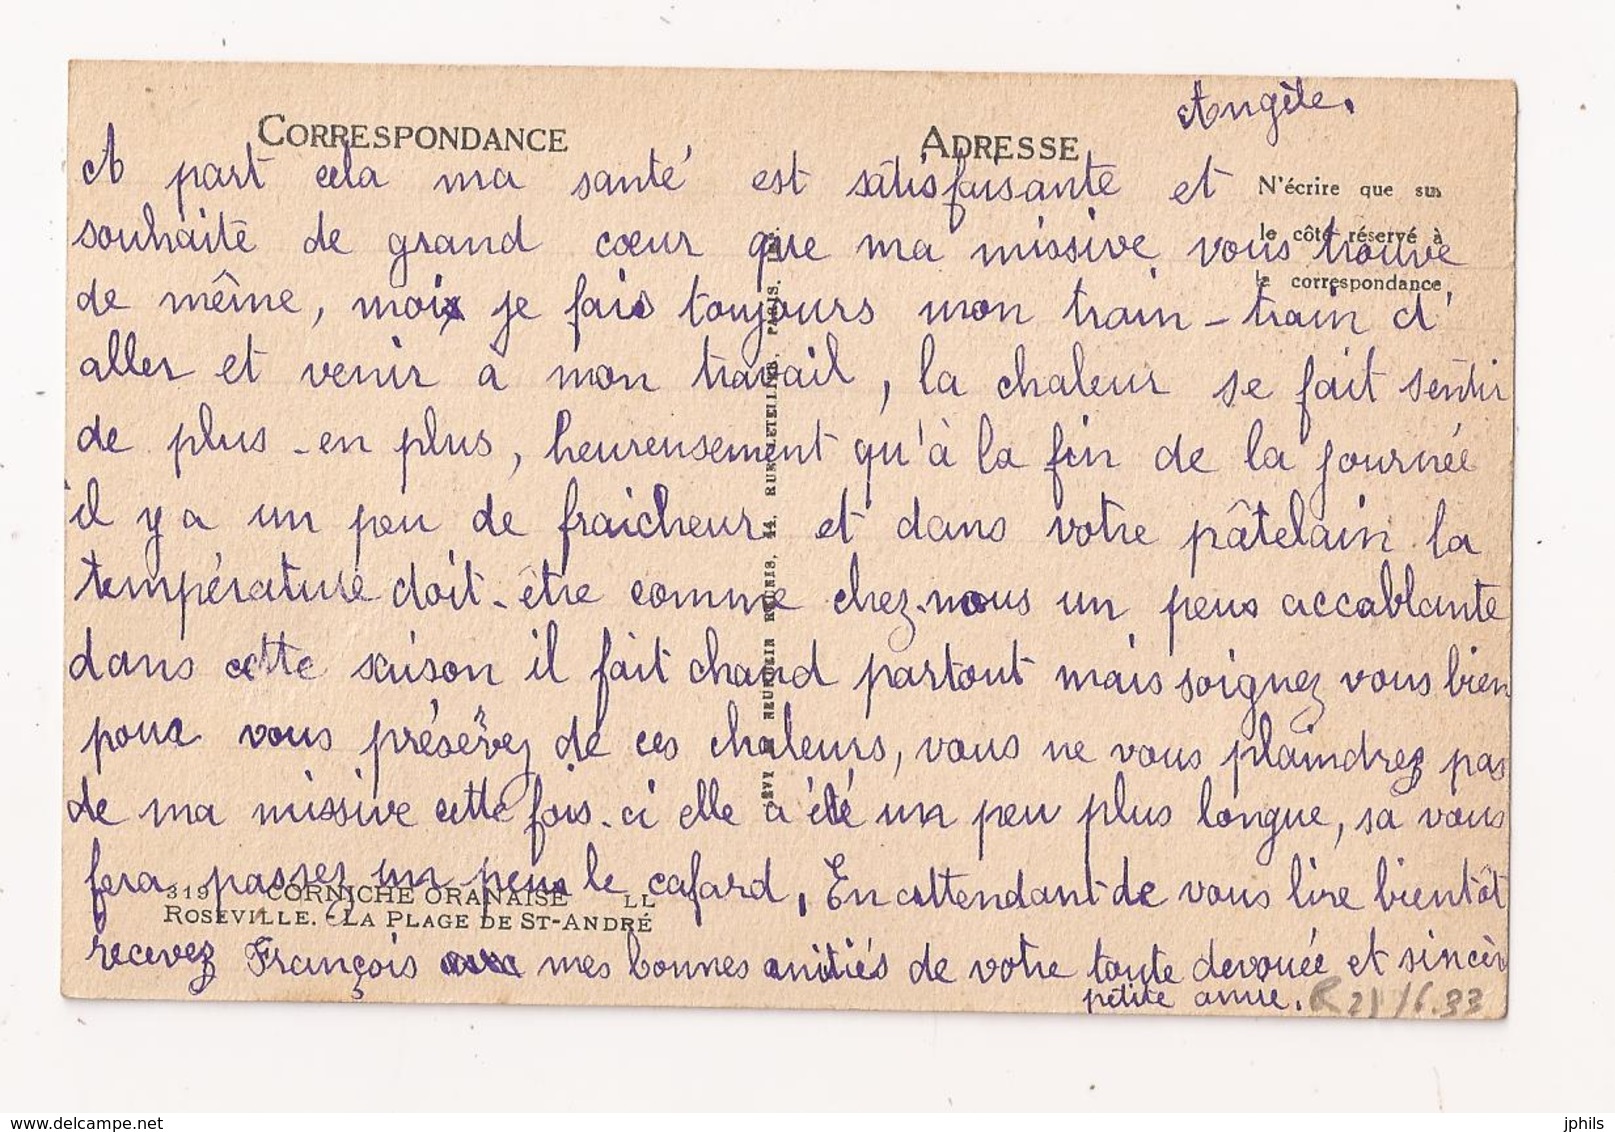 Angèle.
CORRESPONDANCE
ADRESSE
A part cela ma santé est satisfaisante et
N'écrire que sur
le côté réservé à
la correspondance
souhaite de grand cœur que ma missive vous trouve
de même, moi je fais toujours mon train-train d'
aller et venir à mon travail, la chaleur se fait sentir
de plus-en plus, heureusement qu'à la fin de la journée
il y a un peu de fraicheur et dans votre pâtelain la
température doit-être comme chez-nous un peu accablante
dans cette saison il fait chaud partout mais soignez vous bien
pour vous préservez de ces chaleurs, vous ne vous plaindrez pas
de ma missive cette fois-ci elle a été un peu plus longue, sa vous
fera passer un peu le cafard, En attendant de vous lire bientôt
319 CORNICHE ORANAISE LL
ROSEVILLE. - LA PLAGE DE ST-ANDRÉ
recevez François mes bonnes amitiés de votre toute devouée et sincèr
petite amie. R 21/6.33
LÉVY & NEURDEIN RÉUNIS, 44, RUE LETELLIER, PARIS, IMP.
www.delcampe.net
jphils